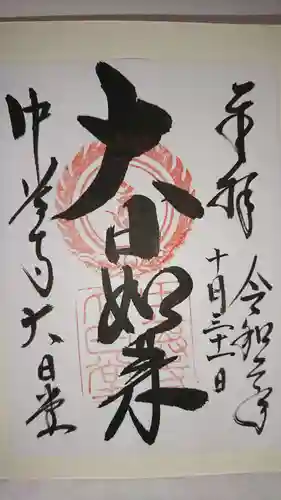 奉拝
令和二年
十月二十一日
大日如来
中尊寺大日堂